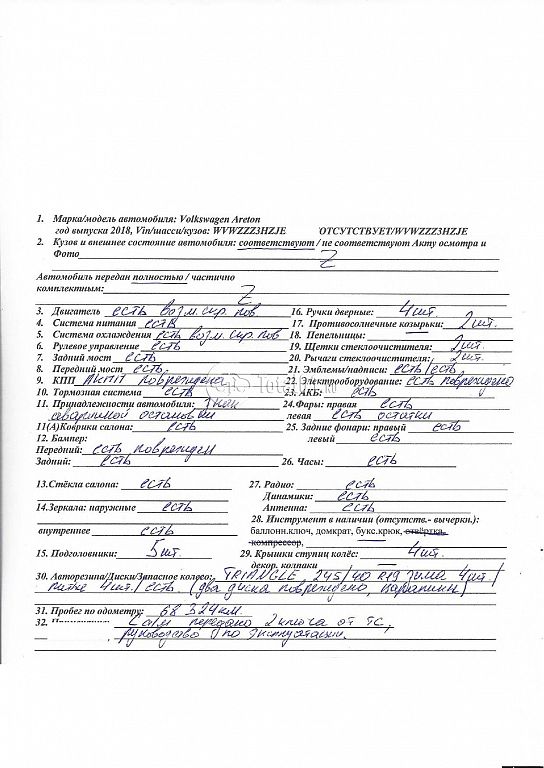 1. Марка/модель автомобиля: Volkswagen Areton
год выпуска 2018, Vin/шасси/кузов: WVWZZZ3HZJE ОТСУТСТВУЕТ/WVWZZZ3HZJE
2. Кузов и внешнее состояние автомобиля: соответствуют / не соответствуют Акту осмотра и
Фото Z
Автомобиль передан полностью / частично
комплектным: Z
3. Двигатель есть возм. скр. пов 16. Ручки дверные: 4 шт.
4. Система питания есть 17. Противосолнечные козырьки: 2 шт.
5. Система охлаждения есть возм. скр. пов 18. Пепельницы: —
6. Рулевое управление есть 19. Щетки стеклоочистителя: 2 шт.
7. Задний мост есть 20. Рычаги стеклоочистителя: 2 шт.
8. Передний мост есть 21. Эмблемы/надписи: есть/есть
9. КПП АКПП повреждена 22. Электрооборудование: есть повреждено
10. Тормозная система есть 23. АКБ: есть
11. Принадлежности автомобиля: Знак 24.Фары: правая есть
аварийной остановки левая есть остатки
11(А)Коврики салона: есть 25. Задние фонари: правый есть
12. Бампер: левый есть
Передний: есть поврежден
Задний: есть 26. Часы: есть
13.Стёкла салона: есть 27. Радио: есть
Динамики: есть
14.Зеркала: наружные есть Антенна: есть
28. Инструмент в наличии (отсутств.- вычеркн.):
внутреннее есть баллонн.ключ, домкрат, букс.крюк, отвёртка,
компрессор,
15. Подголовники: 5 шт. 29. Крышки ступиц колёс: 4 шт.
декор. колпаки
30. Авторезина/Диски/Запасное колесо: TRIANGLE 245/40 R19 зима 4 шт/
литые 4 шт/ есть (два диска повреждено, царапины)
31. Пробег по одометру: 68 324 км.
32. С а/м передано 2 ключа от ТС,
руководство по эксплуатации.